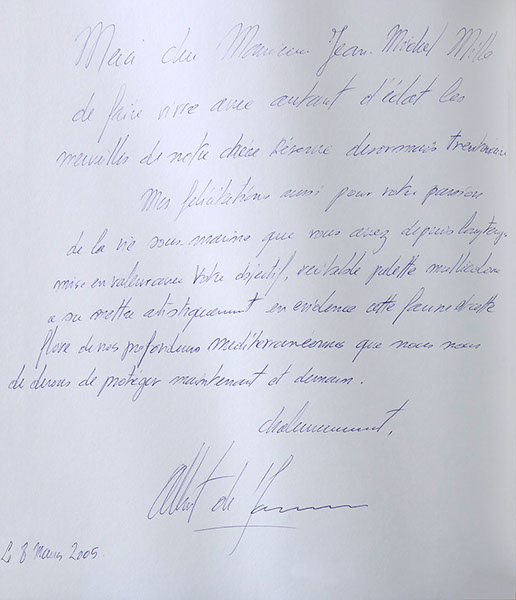 Merci cher Monsieur Jean-Michel Mille
de faire vivre avec autant d'éclat les
merveilles de notre chère Réserve désormais trentenaire
Mes félicitations aussi pour votre passion
de la vie sous-marine que vous avez depuis longtemps
mise en valeur avec votre objectif, véritable palette multicolore
a su mettre artistiquement en évidence cette faune et cette
flore de nos profondeurs méditerranéennes que nous nous
devons de protéger maintenant et demain.
chaleureusement,
Albert de
Le 8 Mars 2005